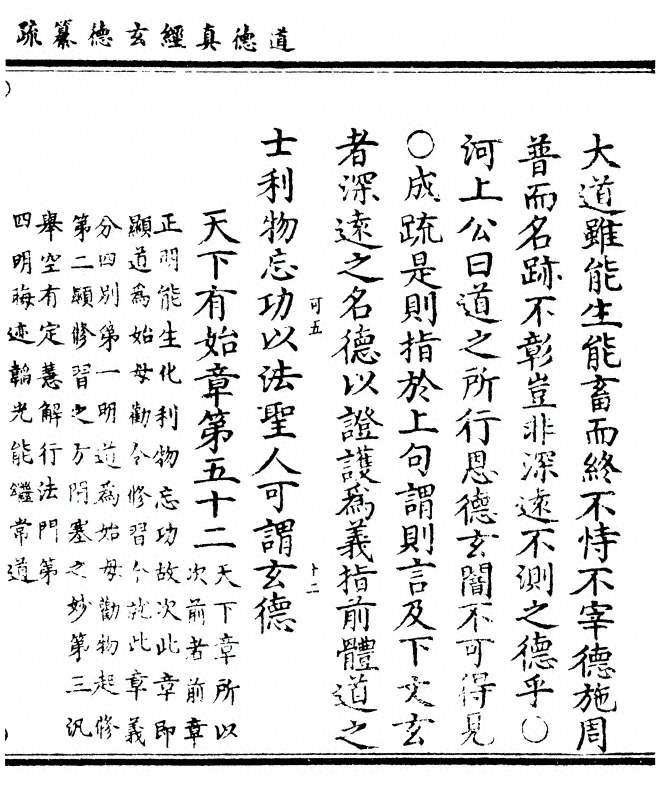 道德真經玄德纂疏
大道雖能生能畜而終不恃不宰德施周
普而名跡不彰豈非深遠不測之德乎○
河上公曰道之所行恩德玄闇不可得見
○成疏是則指於上句謂則言及下文玄
者深遠之名德以證護為義指前體道之
可五
十二
士利物忘功以法聖人可謂玄德
天下有始章第五十二
天下章所以
次前者前章
正明能生化利物忘功故次此章即
顯道為始母勸令修習今就此章義
分四別第一明道為始母勸物起修
第二顯修習之方閉塞之妙第三汎
舉空有定慧解行法門第
四明晦迹韜光能繼常道